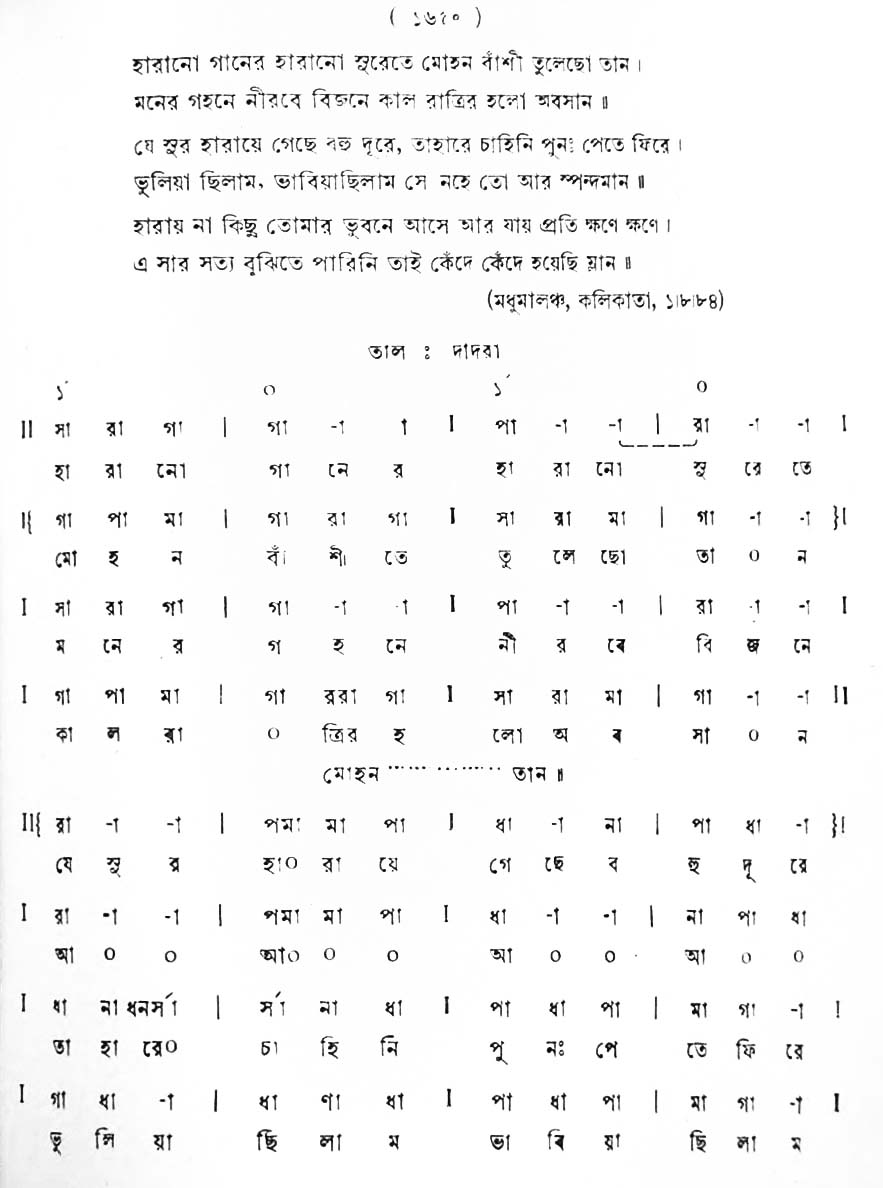 ( ১৬৫০ )
হারানো গানের হারানো সুরেতে মোহন বাঁশী তুলেছো তান।
মনের গহনে নীরবে বিজনে কাল রাত্রির হলো অবসান॥
যে সুর হারায়ে গেছে বহু দূরে, তাহারে চাহিনি পুনঃ পেতে ফিরে।
ভুলিয়া ছিলাম, ভাবিয়াছিলাম সে নহে তো আর স্পন্দমান॥
হারায় না কিছু তোমার ভুবনে আসে আর যায় প্রতি ক্ষণে ক্ষণে।
এ সার সত্য বুঝিতে পারিনি তাই কেঁদে কেঁদে হয়েছি ম্লান॥
(মধুমালঞ্চ, কলিকাতা, ১।৮।৮৪)
তাল : দাদরা
১´ ০ ১´ ০
II সা রা গা | গা -া া I পা -া -া | রা -া -া I
হা রা নো গা নে র হা রা নো সু রে তে
II{ গা পা মা | গা রা গা I সা রা মা | গা -া -া }I
মো হ ন বাঁ শী তে তু লে ছো তা ০ ন
I সা রা গা | গা -া -া I পা -া -া | রা -া -া I
ম নে র গ হ নে নী র বে বি জ নে
I গা পা মা | গা ররা গা I সা রা মা | গা -া -া II
কা ল রা ০ ত্রির হ লো অ ব সা ০ ন
মোহন ·················· তান॥
II{ রা -া -া | পমা মা পা I ধা -া না | পা ধা -া }I
যে সু র হা০ রা য়ে গে ছে ব হু দূ রে
I রা -া -া | পমা মা পা I ধা -া -া | না পা ধা
আ ০ ০ আ০ ০ ০ আ ০ ০ আ ০ ০
I ধা না ধনর্সা | র্সা না ধা I পা ধা পা | মা গা -া I
তা হা রে০ চা হি নি পু নঃ পে তে ফি রে
I গা ধা -া | ধা ণা ধা I পা ধা পা | মা গা -া I
ভু লি য়া ছি লা ম ভা বি য়া ছি লা ম